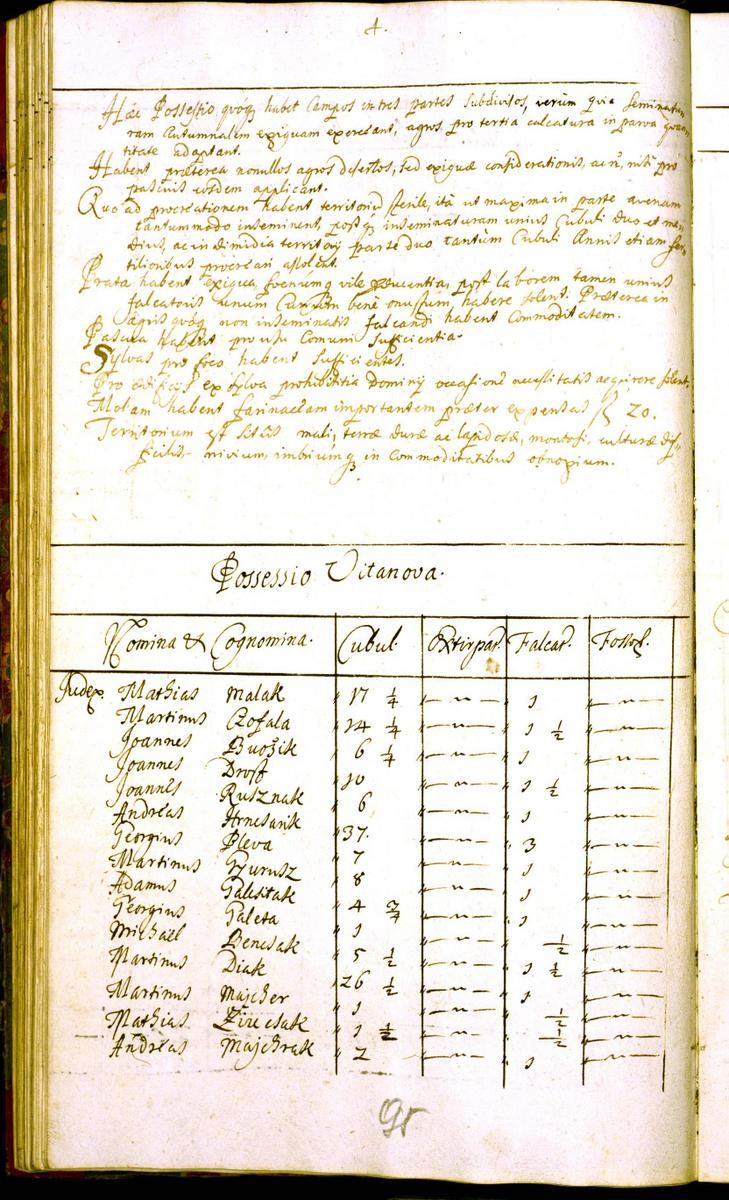 4.
Haec Possessio quoq habet Campos in tres partes Subdivisos, verum quia Seminatur
am Autumnalem exiguam exerceant, agros pro tertia calcatura in parva quan
titate adaptant.
Habent praeterea nonullos agros desertos, sed exiguae considerationis, ac
pascuis eosdem applicant.
Quo ad procreationem habent territoriu sterile, ità ut maxima in parte avenam
tantummodo inseminent, post inseminaturam unius Cubuli duo et me,
dius, ac in dimidia territory parte duo tantùm Cubuli Annis etiam fer,
tilioribus procreari assolent.
Prata habent exigua, foenumq vile producentia, post laborem tamen unius
falcatoris unum Currum bene onustum, habere solent. Praeterea in
agris quoq non inseminatis falcandi habent Commoditatem.
Pascua habent pro usu Comuni Sufficientia.
Sylvas pro foco habent Sufficientes.
Pro aedificijs ex Sylva prohibititia Dominij occasione necessitatis acquirere solent.
Molam habent farinaceam importantem praeter expensas f 20.
Territorium est sitûs mali, terrae durae ac lapidosae, montosi, culturae dif,
ficilis, nivium, imbriumq in Commoditatibus obnoxium.
Possessio Vitanova.
Nomina & Cognomina. Cubul. Extirpat. Falcat. Fossor.
Judex. Mathias Malak " 17 1/4 " — " — " 1 " — " —
Martinus Czofala " 14 1/4 " — " — " 1 1/2 " — " —
Joannes Buožik " 6 1/4 " — " — " 1 " — " —
Joannes Drost " 10 " — " — " 1 1/2 " — " —
Joannes Rusznak " 6 " — " — " 1 " — " —
Andreas Hrnesarik " 37. " — " — " 3 " — " —
Georgius Bleva " 7 " — " — " 1 " — " —
Martinus Gyurusz " 8 " — " — " 1 " — " —
Adamus Galistak " 4 3/4 " — " — " 1 " — " —
Georgius Galeta " 1 " — " — " 1/2 " — " —
Michael Bencsak " 5 1/2 " — " — " 1 1/2 " — " —
Martinus Diak " 26 1/2 " — " — " 1 " — " —
Martinus Majcher " 1 " — " — " 1/2 " — " —
Mathias Žiucsak " 1 1/2 " — " — " 1/2 " — " —
Andreas Majchrak " 2 " — " — " 1 " — " —
95